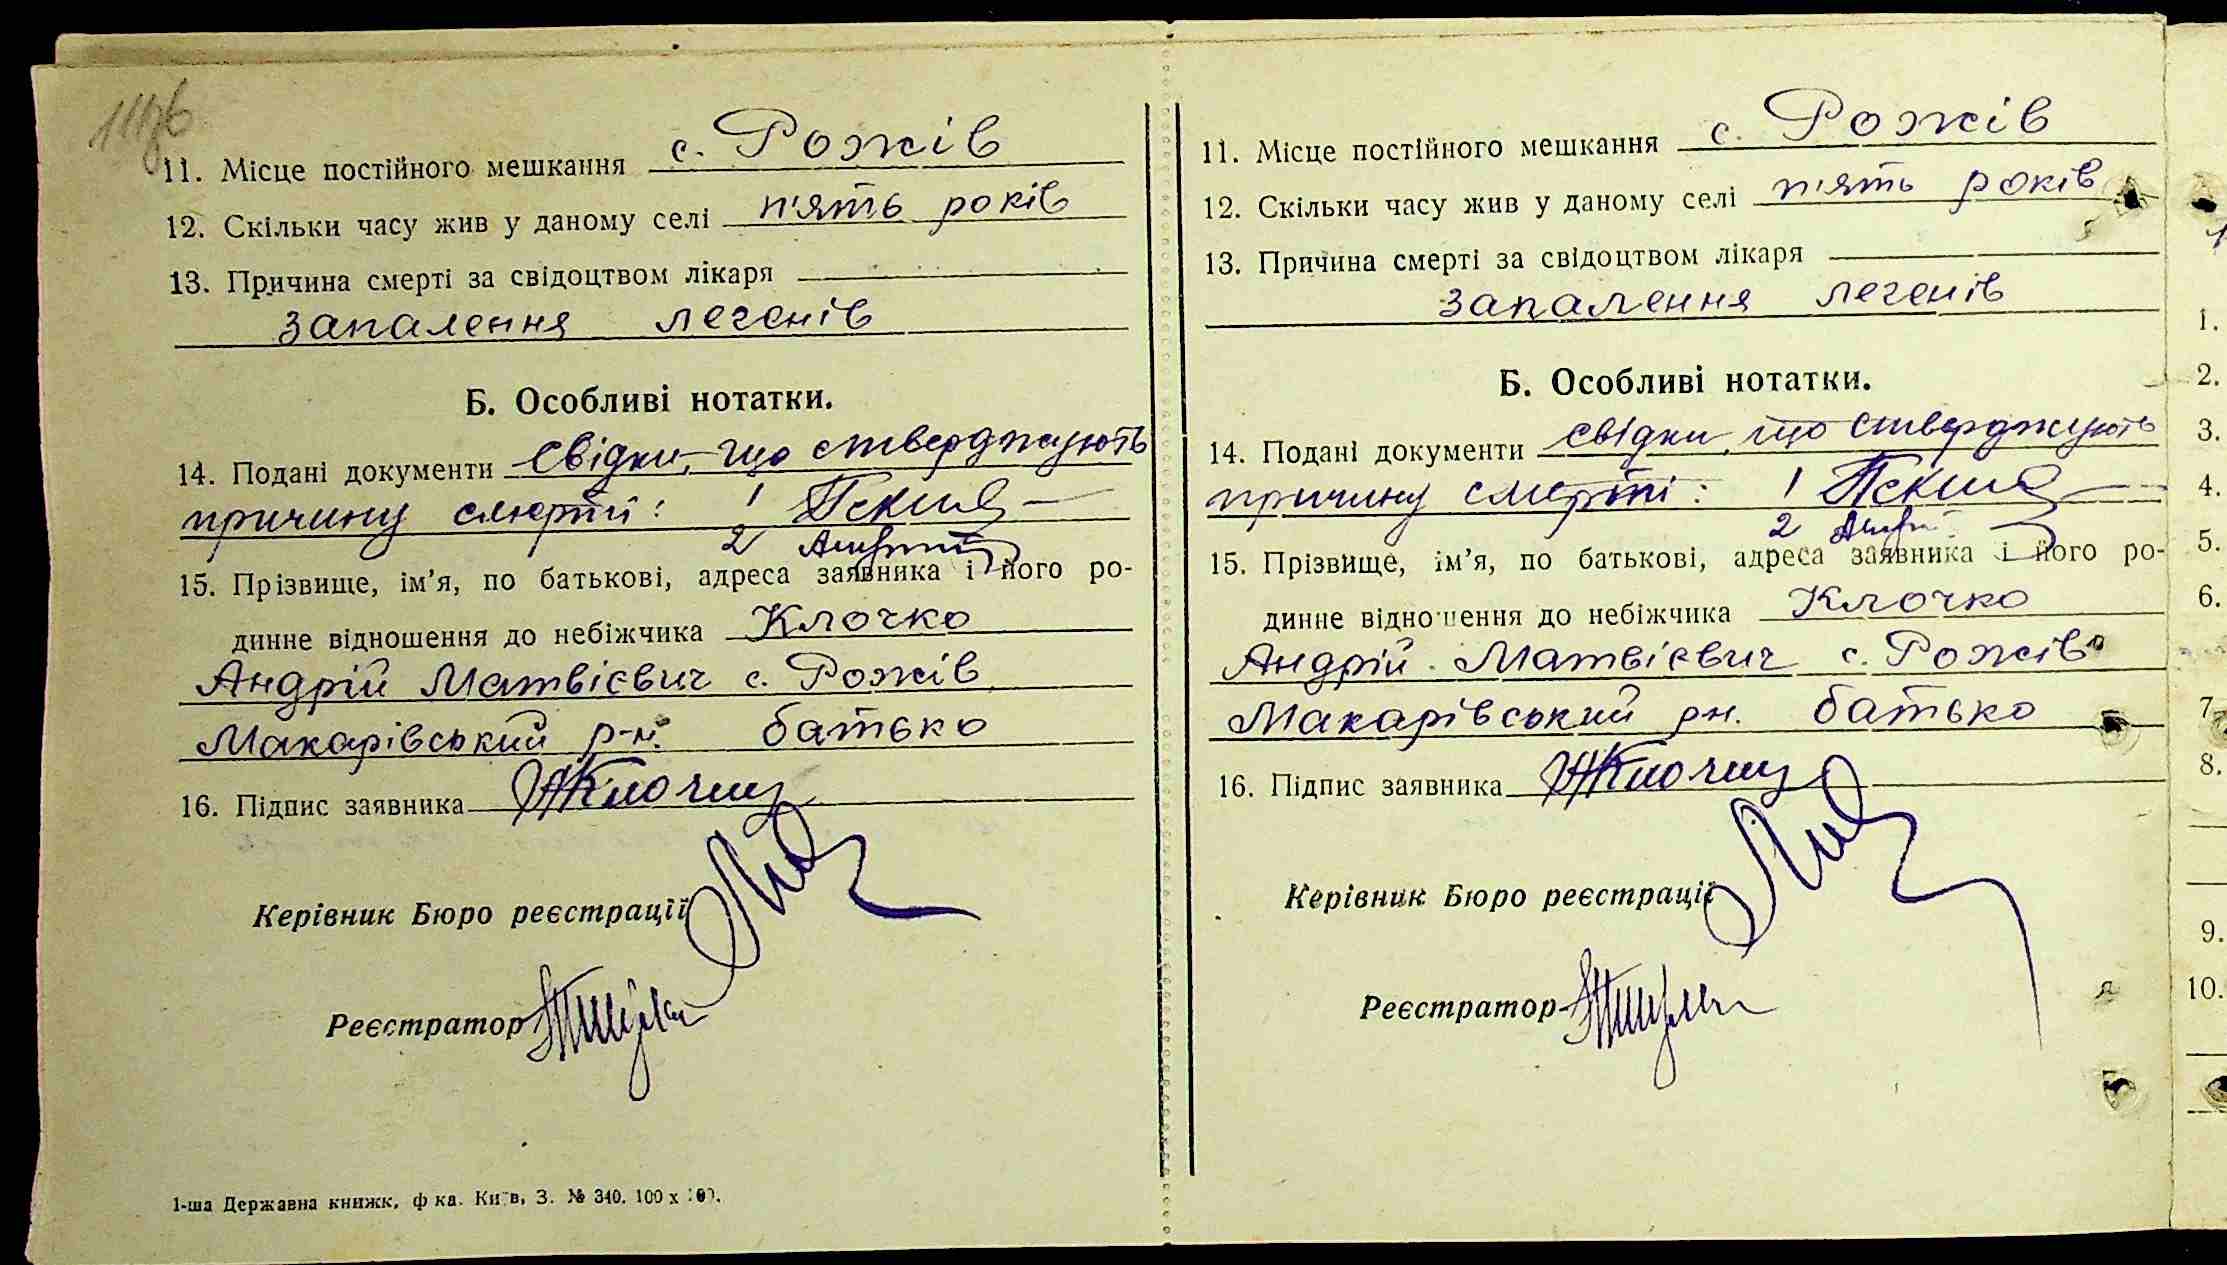 11. Місце постійного мешкання с. Рожів
12. Скільки часу жив у даному селі п'ять років
13. Причина смерті за свідоцтвом лікаря
запалення легенів
Б. Особливі нотатки.
14. Подані документи свідки, що стверджують
причину смерти: 1
2
15. Прізвище, ім'я, по батькові, адреса заявника і його ро-
динне відношення до небіжчика Клочко
Андрій Матвієвич с. Рожів
Макарівський р-н. батько
16. Підпис заявника
Керівник Бюро реєстрації
Реєстратор
1-ша Державна книжк. ф ка. Київ, З. № 340. 100 х
11. Місце постійного мешкання с. Рожів
12. Скільки часу жив у даному селі п'ять років
13. Причина смерті за свідоцтвом лікаря
запалення легенів
Б. Особливі нотатки.
14. Подані документи свідки, що стверджують
причину смерті: 1
2
15. Прізвище, ім'я, по батькові, адреса заявника і його ро-
динне відношення до небіжчика Клочко
Андрій Матвієвич с. Рожів
Макарівський рн. батько
16. Підпис заявника
Керівник Бюро реєстрації
Реєстратор
1.
2.
3.
4.
5.
6.
7.
8.
9.
10.